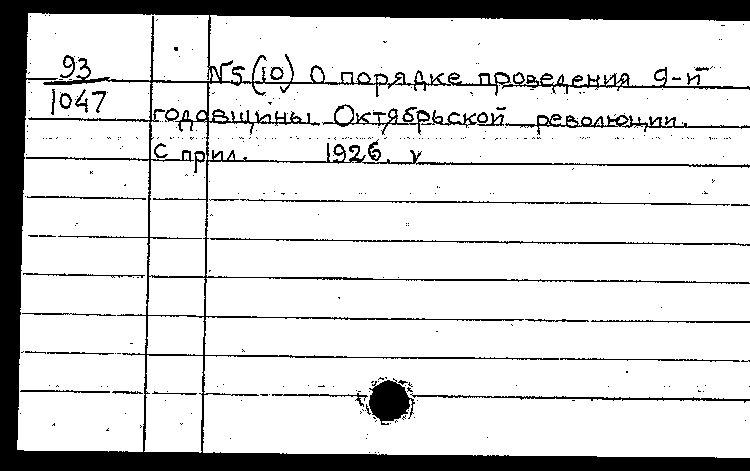 93
1047
№5(10) О порядке проведения 9-й
годовщины Октябрьской революции.
С прил. 1926. v